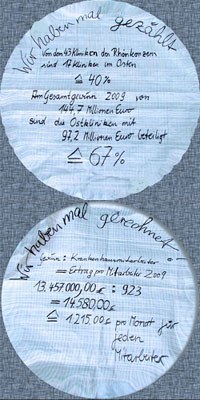 Wir haben mal gezählt
Von den 43 Kliniken des Rhönkonzern
sind 17 Kliniken im Osten
≙ 40%
Am Gesamtgewinn 2009 von
144,7 Millionen Euro
sind die Ostkliniken mit
97,2 Millionen Euro beteiligt
≙ 67%
Wir haben mal gerechnet
: Krankenhausmitarbeiter
= Ertrag pro Mitarbeiter 2009
13.457000,00 € : 923
= 14.580,00 €
≙ 1.215,00 € pro Monat für
jeden
Mitarbeiter